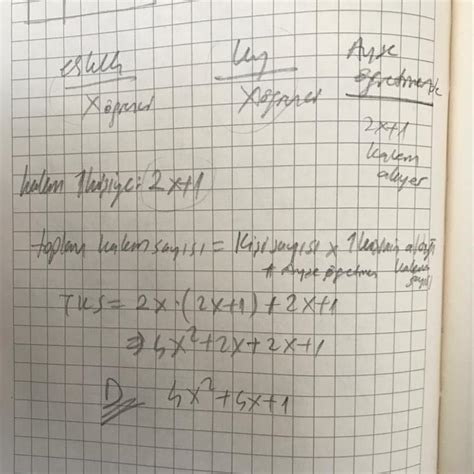 erkek kız Ayşe öğretmende
X öğrenci X öğrenci 2x+1 kalem alıyor
kalem 1 kişiye: 2x+1
toplam kalem sayısı = Kişi sayısı x 1 kişinin aldığı kalem sayısı
+ Ayşe öğretmen
TKS = 2x·(2x+1)+2x+1
⇒ 4x²+2x+2x+1
D 4x²+4x+1